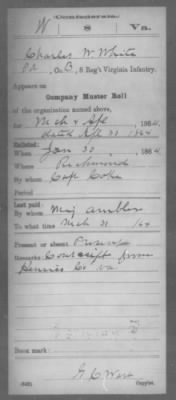 (Confederate.)
W 8 Va.
Charles W. White
Pvt, Co. B, 8 Reg't Virginia Infantry.
Appears on
Company Muster Roll
of the organization named above,
for Mch & Apl 1864.
dated Apl 30 1864
Enlisted:
When Jan 30, 1864
Where Richmond
By whom Capt Coke
Period
Last paid:
By whom Maj Ambler
To what time Mch 31 1864
Present or absent Present
Remarks: Conscript from
Henrico Co Va
Book mark:
Copyist.